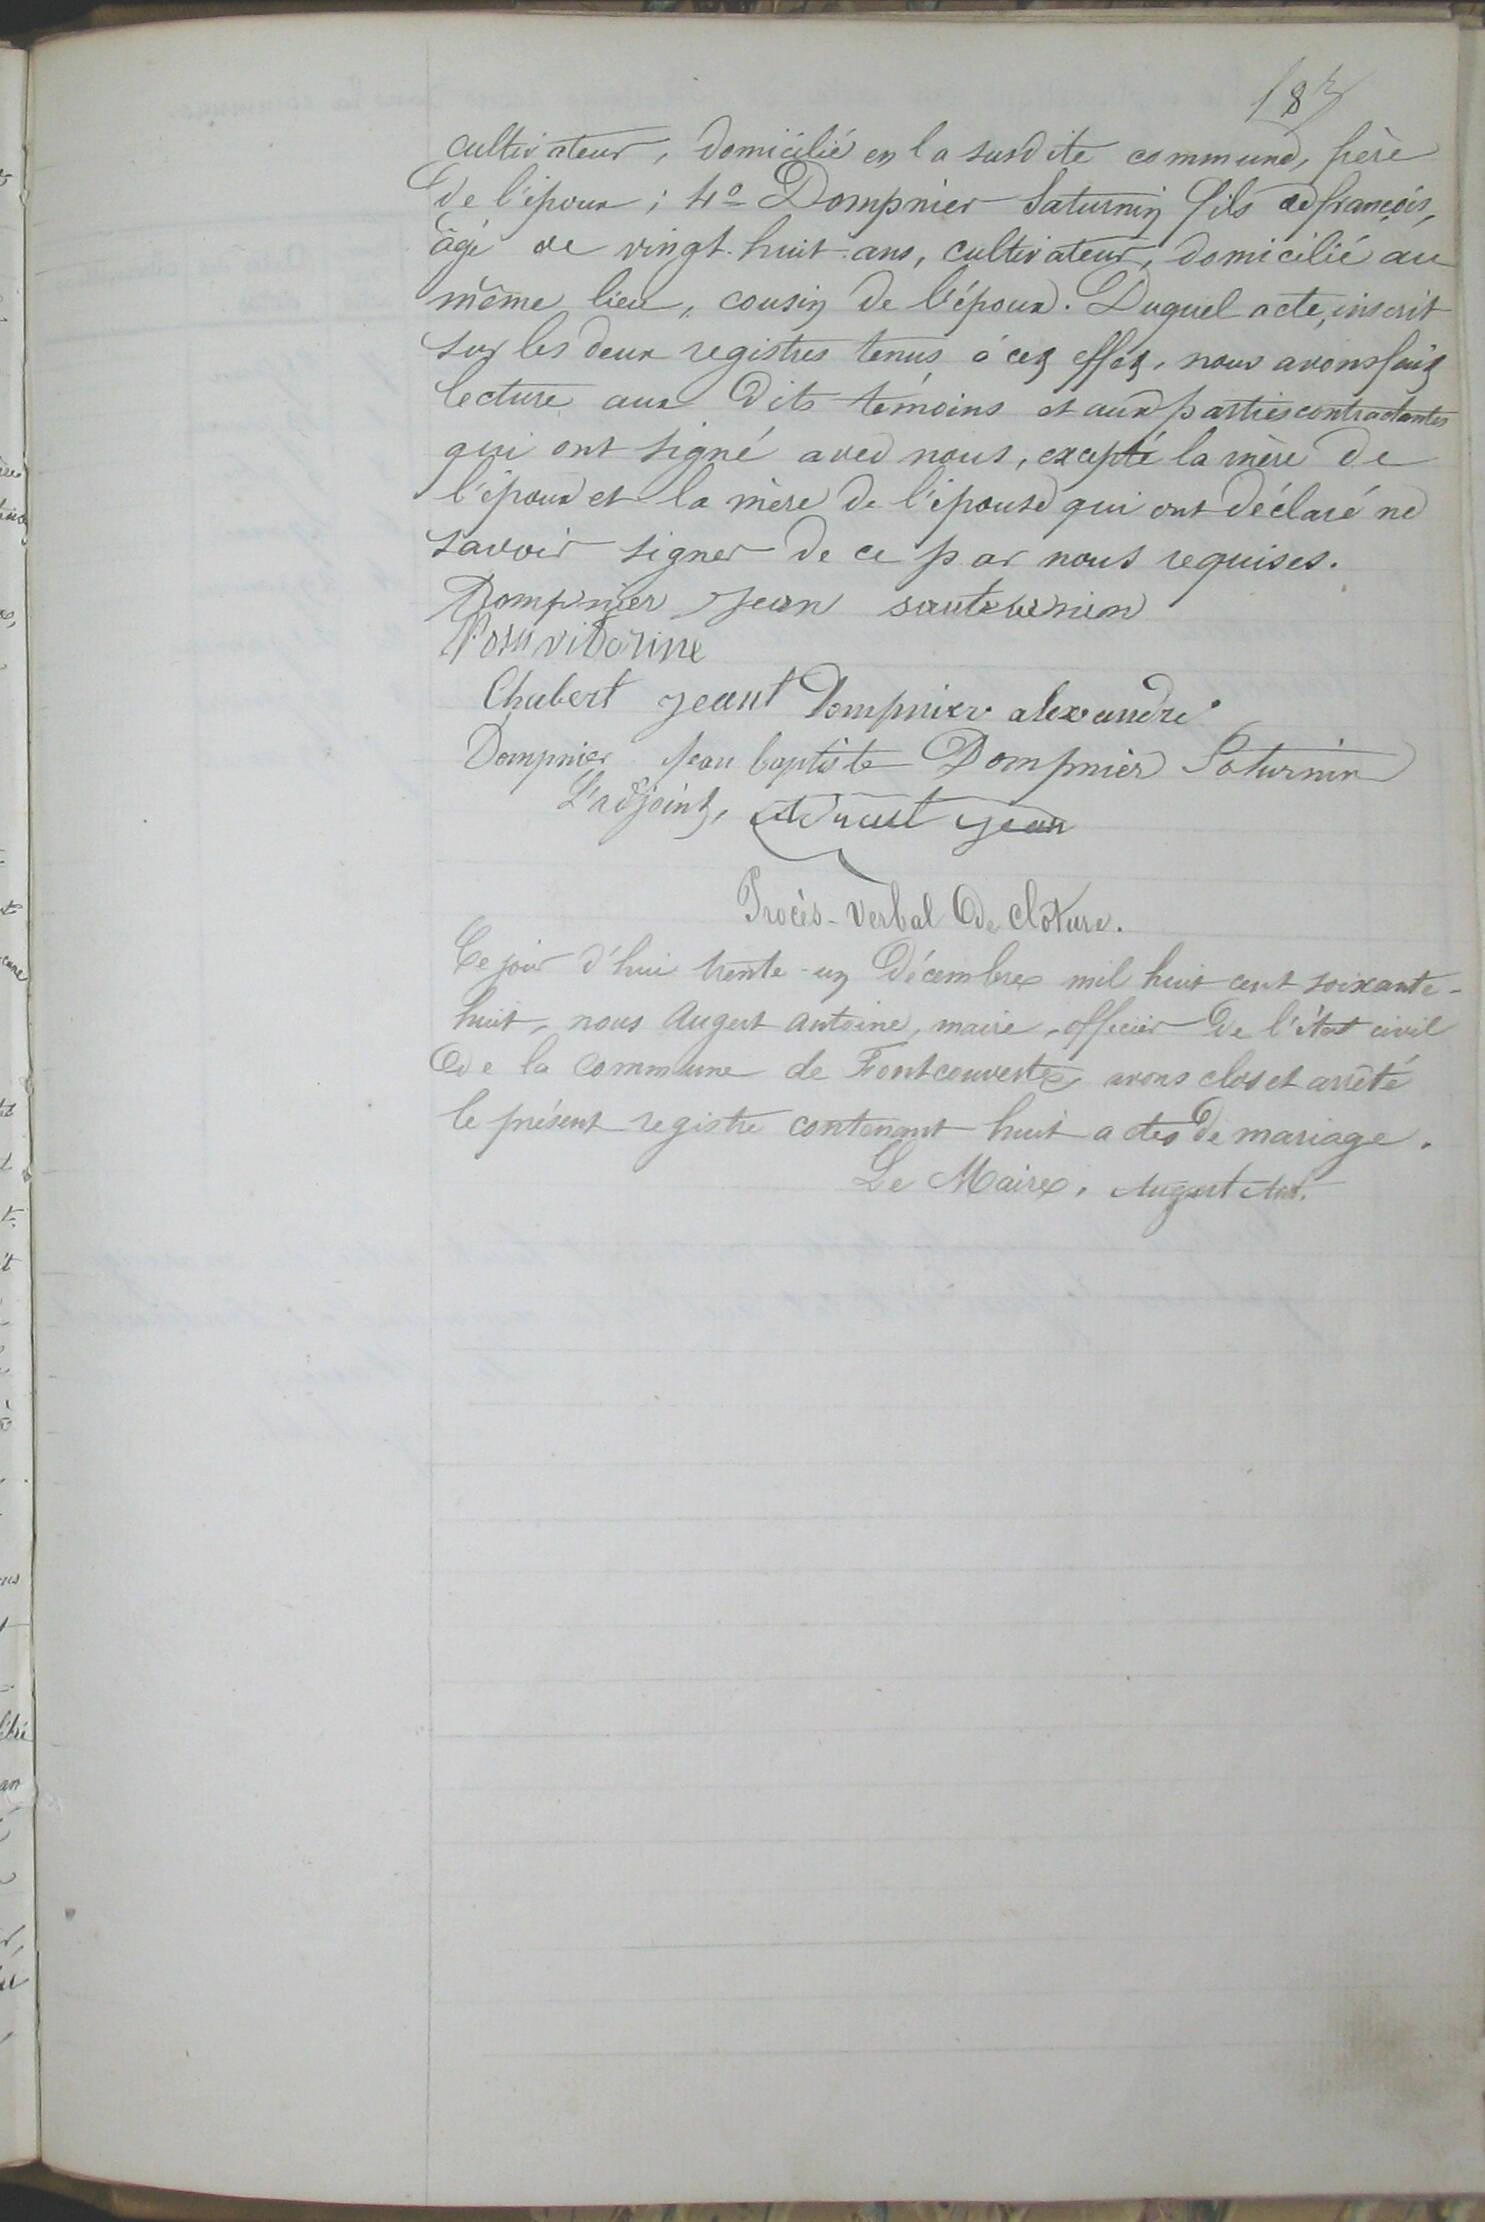 183
cultivateur, domicilié en la susdite commune, frère
de l'époux ; 4º Dompnier Saturnin fils de françois,
âgé de vingt-huit ans, cultivateur, domicilié au
même lieu, cousin de l'époux. Duquel acte, inscrit
sur les deux registres tenus à cet effet, nous avons fait
lecture aux dits témoins et aux parties contractantes
qui ont signé avec nous, excepté la mère de
l'époux et la mère de l'épouse qui ont déclaré ne
savoir signer de ce par nous requises.
Dompnier jean
Chabert jean Dompnier alexandre
Dompnier Jean baptiste Dompnier Saturnin
L'adjoint, jean
Procès-Verbal de clôture.
Ce jour d'hui trente-un Décembre mil huit cent soixante-
huit, nous Augert Antoine, maire, officier de l'état civil
de la Commune de Fontcouverte, avons clos et arrêté
le présent registre contenant huit actes de mariage.
Le Maire, Augert Ant.